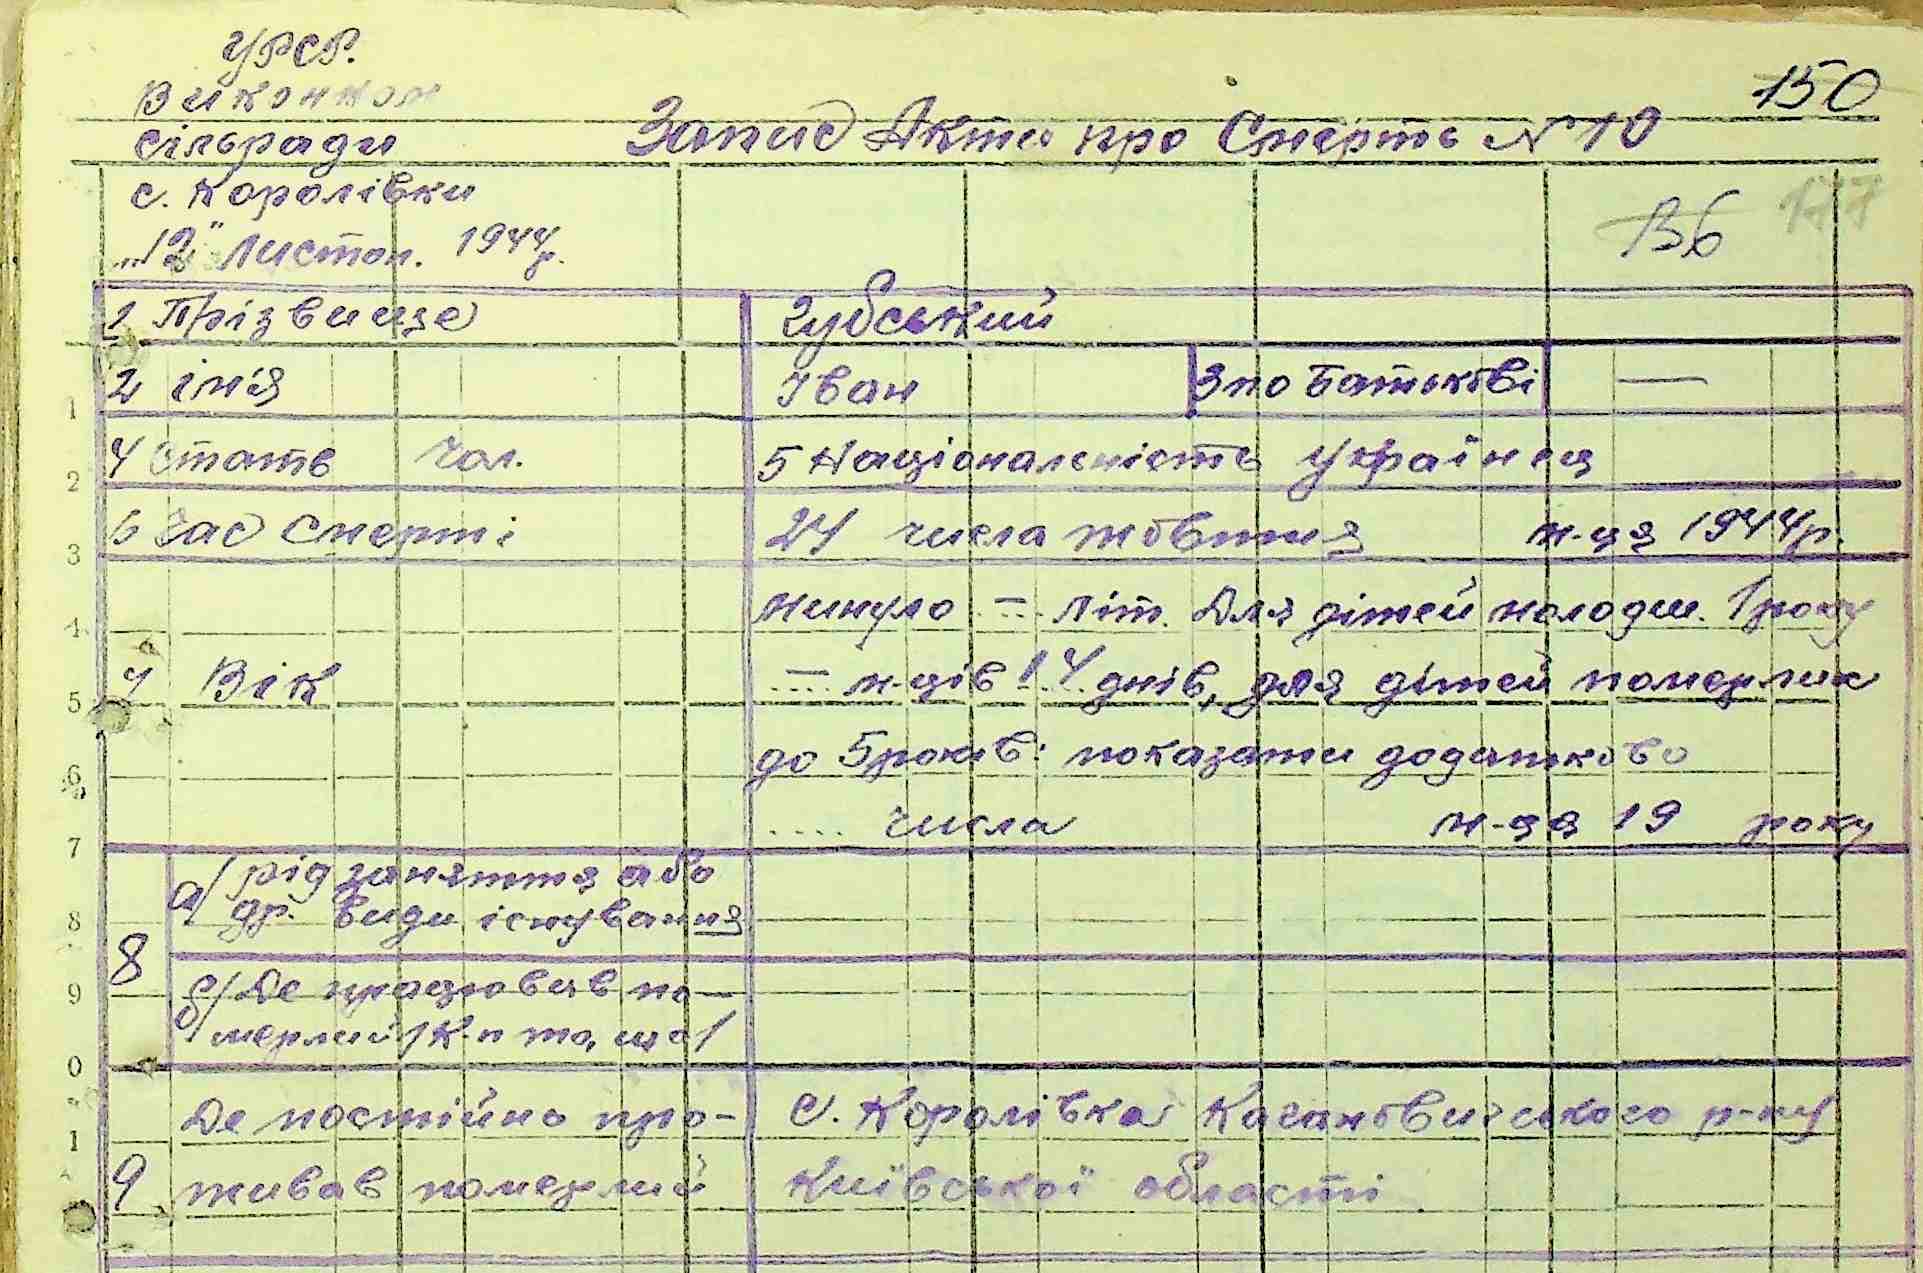 УРСР.
Виконком
сільради
Запис Акта про Смерть № 10
150
с. Королівки
„12" Листоп. 1944р.
136
177
1 Прізвище
Зубський
2 ім'я
Іван
3 по Батькові
—
4 стать чол.
5 Національність українец
6 Час Смерті
24 числа жовтня м-ця 1944р.
7 Вік
минуло — літ. Для дітей молодш. 1 року
— м-ців 14 днів, для дітей померлих
до 5 років: показати додатково
.... числа м-ця 19 року
8
а/ рід заняття або
др. види існування
б/ Де працював по-
мерлий /к-п та, що/
9
Де постійно про-
живав померлий
С. Королівка Кагановичського р-ну
Київської області
1
2
3
4
5
6
7
8
9
0
1